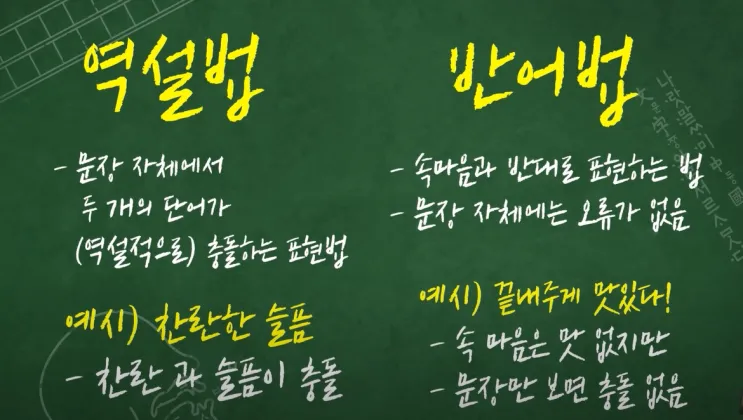 역설법
- 문장 자체에서
두 개의 단어가
(역설적으로) 충돌하는 표현법
예시) 찬란한 슬픔
- 찬란 과 슬픔이 충돌
반어법
- 속마음과 반대로 표현하는 법
- 문장 자체에는 오류가 없음
예시) 끝내주게 맛있다!
- 속 마음은 맛 없지만
- 문장만 보면 충돌 없음